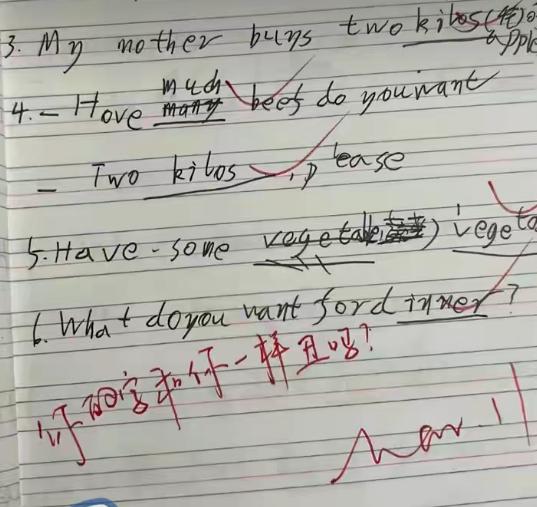 3. My mother buys two kilos(千克)of apple
4. - Hove much many beef do you want
- Two kilos , please
5. Have some vegetable ) vegeta
6. What do you want for dinner?
你确定和你一样丑吗?
Mar. 11